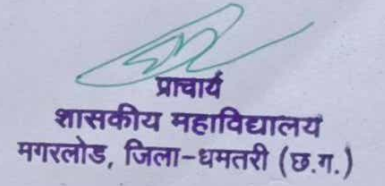 प्राचार्य
शासकीय महाविद्यालय
मगरलोड, जिला-धमतरी (छ.ग.)